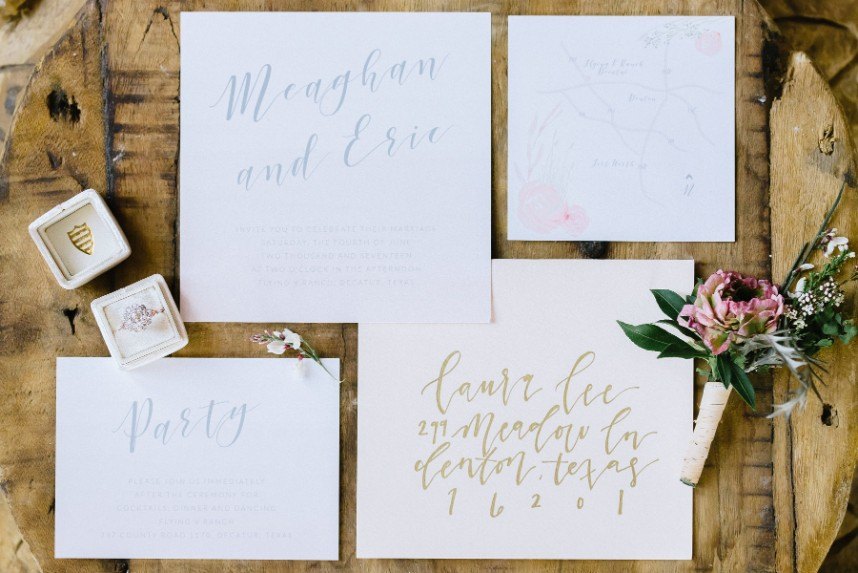 Meaghan
and Eric
INVITE YOU TO CELEBRATE THEIR MARRIAGE
SATURDAY, THE FOURTH OF JUNE
TWO THOUSAND AND SEVENTEEN
AT TWO O'CLOCK IN THE AFTERNOON
FLYING V RANCH, DECATUR, TEXAS
Flying V Ranch
Decatur
Denton
N
Party
PLEASE JOIN US IMMEDIATELY
AFTER THE CEREMONY FOR
COCKTAILS, DINNER AND DANCING
FLYING V RANCH
COUNTY ROAD 1170, DECATUR, TEXAS
Laura Lee
299 Meadow Ln
Denton, Texas
76201